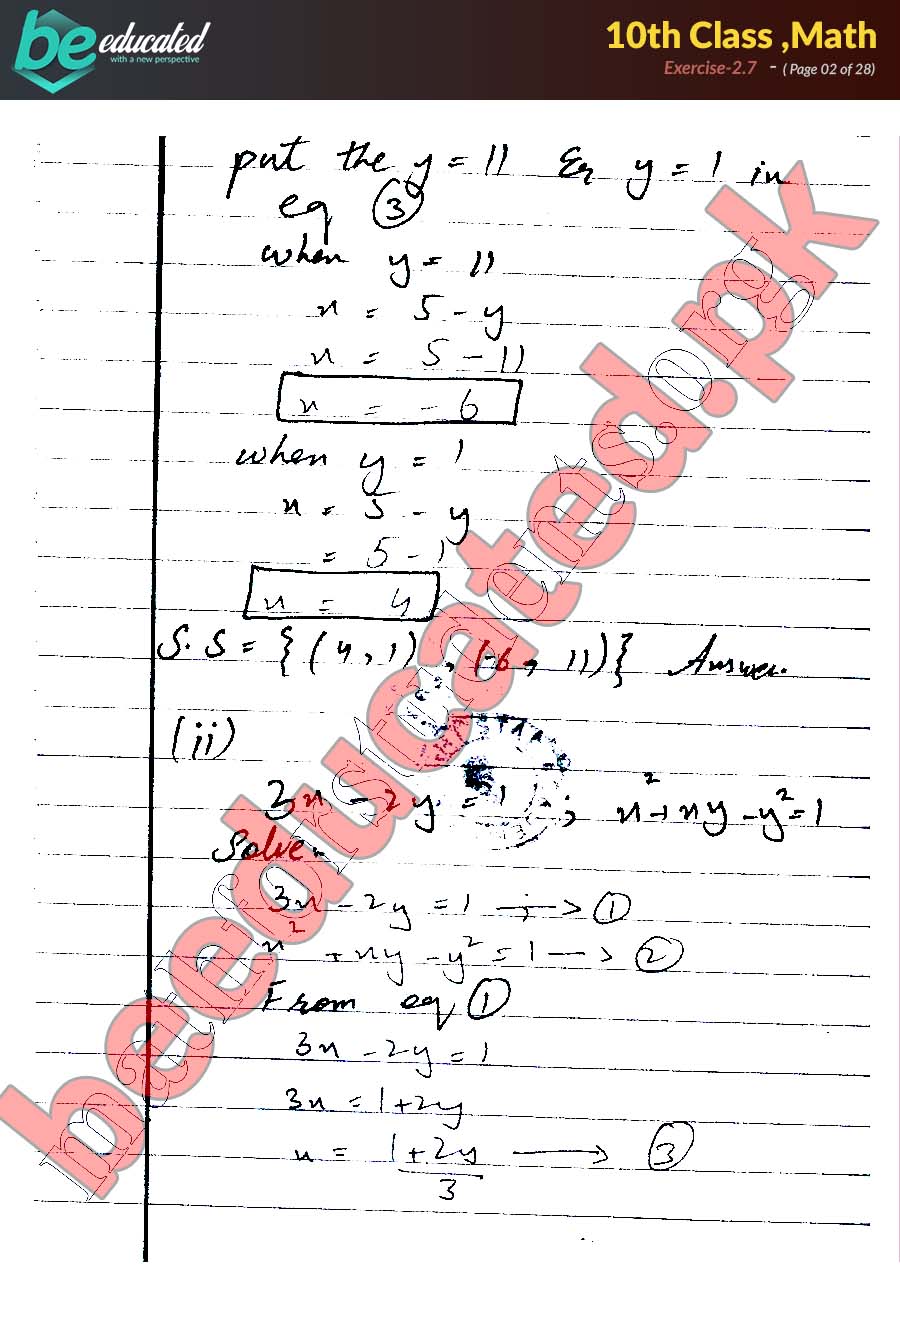 be educated
with a new perspective
10th Class ,Math
Exercise-2.7 - ( Page 02 of 28)
put the y = 11 & y = 1 in
eq ③
when y = 11
x = 5 - y
x = 5 - 11
x = - 6
when y = 1
x = 5 - y
= 5 - 1
x = 4
S.S = {(4, 1), (-6, 11)} Answer.
(ii)
3x - 2y = 1 ; x² + xy - y² = 1
Solve:-
3x - 2y = 1 ; → ①
x² + xy - y² = 1 → ②
From eq ①
3x - 2y = 1
3x = 1 + 2y
x = 1 + 2y → ③
3
beeducated.pk